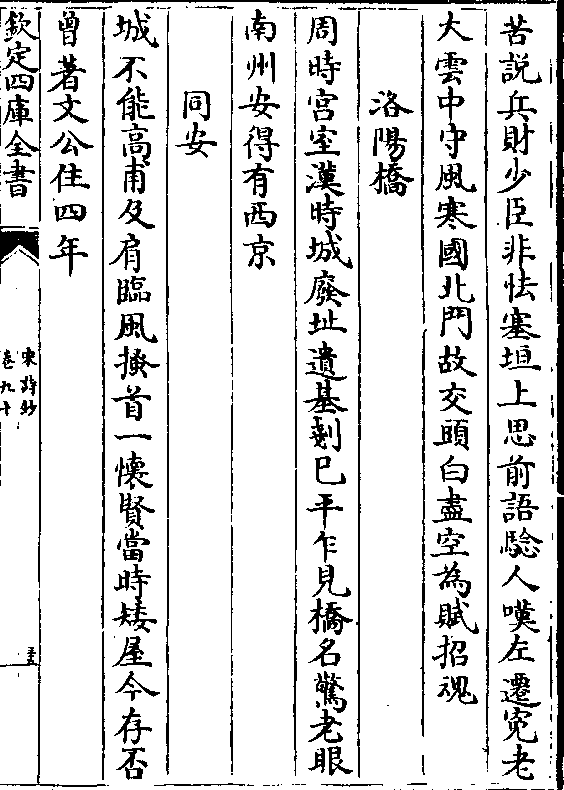 苦説兵財少臣非怯塞垣上思前語驗人嘆左遷寃老
大雲中守風寒國北門故交頭白盡空為賦招魂
洛陽橋
周時宫室漢時城廢址遺基剗巳平乍見橋名驚老眼
南州安得有西京
同安
城不能高甫及肩臨風搔首一懷賢當時矮屋今存否
曾著文公住四年
欽定四庫全書
宋詩鈔
卷九十